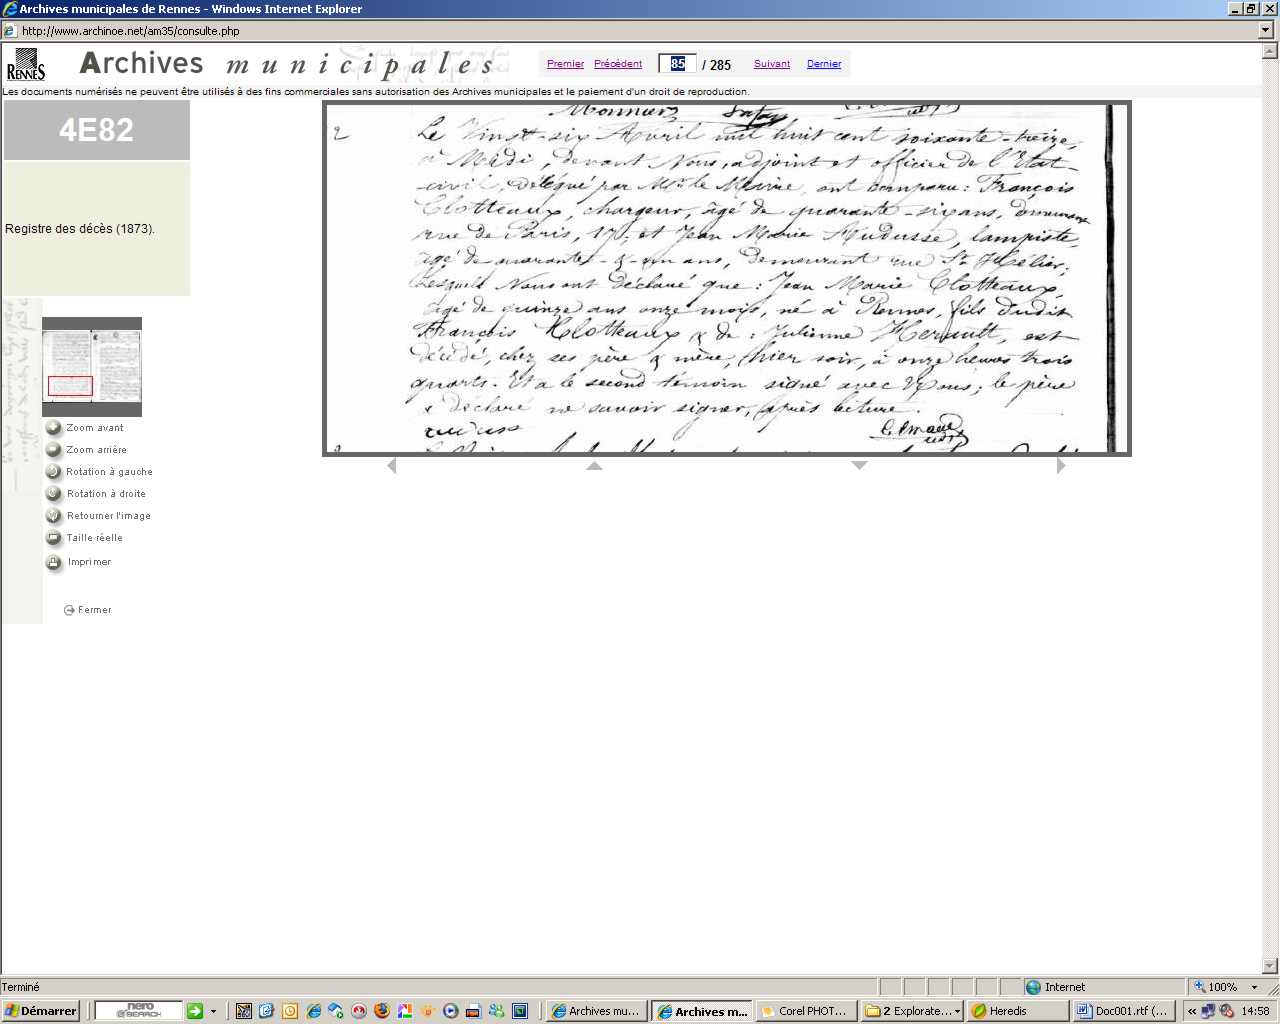 Archives municipales de Rennes - Windows Internet Explorer
http://www.archinoe.net/am35/consulte.php
RENNES
Archives municipales
Premier Précédent 85 / 285 Suivant Dernier
Les documents numérisés ne peuvent être utilisés à des fins commerciales sans autorisation des Archives municipales et le paiement d'un droit de reproduction.
4E82
Registre des décès (1873).
Monnier
2
Le Vingt-six Avril mil huit cent soixante-treize,
à Midi, devant Nous, adjoint et officier de l'Etat
civil, délégué par Mr. le Maire, ont comparu : François
Clotteaux, chargeur, âgé de quarante-six ans, demeurant
rue de Paris, 17, et Jean Marie Nudusse, lampiste,
âgé de quarante-&-un ans, demeurant rue St Hélier;
Lesquels Nous ont déclaré que : Jean Marie Clotteaux,
âgé de quinze ans onze mois, né à Rennes, fils dudit
François Clotteaux & de : Julienne Herault, est
décédé, chez ses père & mère, hier soir, à onze heures trois
quarts. Et a le second témoin signé avec Nous; le père
a déclaré ne savoir signer, après lecture.
Zoom avant
Zoom arrière
Rotation à gauche
Rotation à droite
Retourner l'image
Taille réelle
Imprimer
Fermer
Terminé
Internet
100%
Démarrer
nero
SEARCH
Archives mu...
Archives m...
Corel PHOT...
2 Explorate...
Heredis
Doc001.rtf (...
14:58